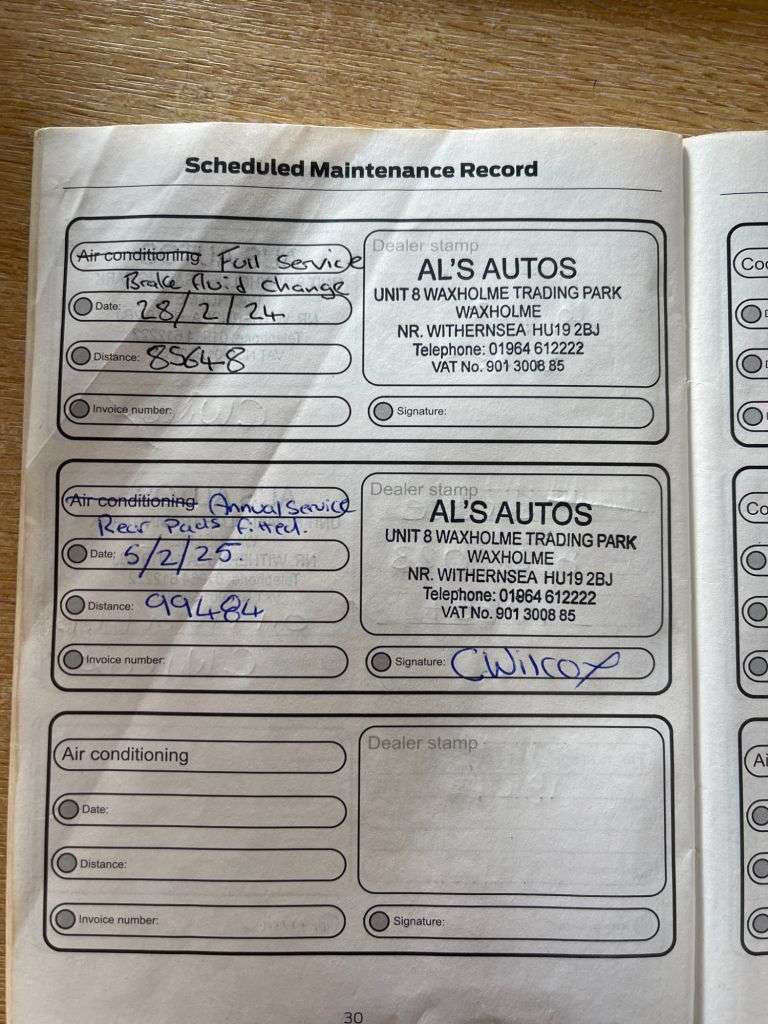 Scheduled Maintenance Record
Air conditioning Full Service
Brake fluid change
Date: 28/2/24
Distance: 85648
Invoice number:
Dealer stamp
AL'S AUTOS
UNIT 8 WAXHOLME TRADING PARK
WAXHOLME
NR. WITHERNSEA HU19 2BJ
Telephone: 01964 612222
VAT No. 901 3008 85
Signature:
Air conditioning Annual Service
Rear Pads fitted.
Date: 5/2/25.
Distance: 99484
Invoice number:
Dealer stamp
AL'S AUTOS
UNIT 8 WAXHOLME TRADING PARK
WAXHOLME
NR. WITHERNSEA HU19 2BJ
Telephone: 01964 612222
VAT No. 901 3008 85
Signature: CWilcox
Air conditioning
Date:
Distance:
Invoice number:
Dealer stamp
Signature:
30